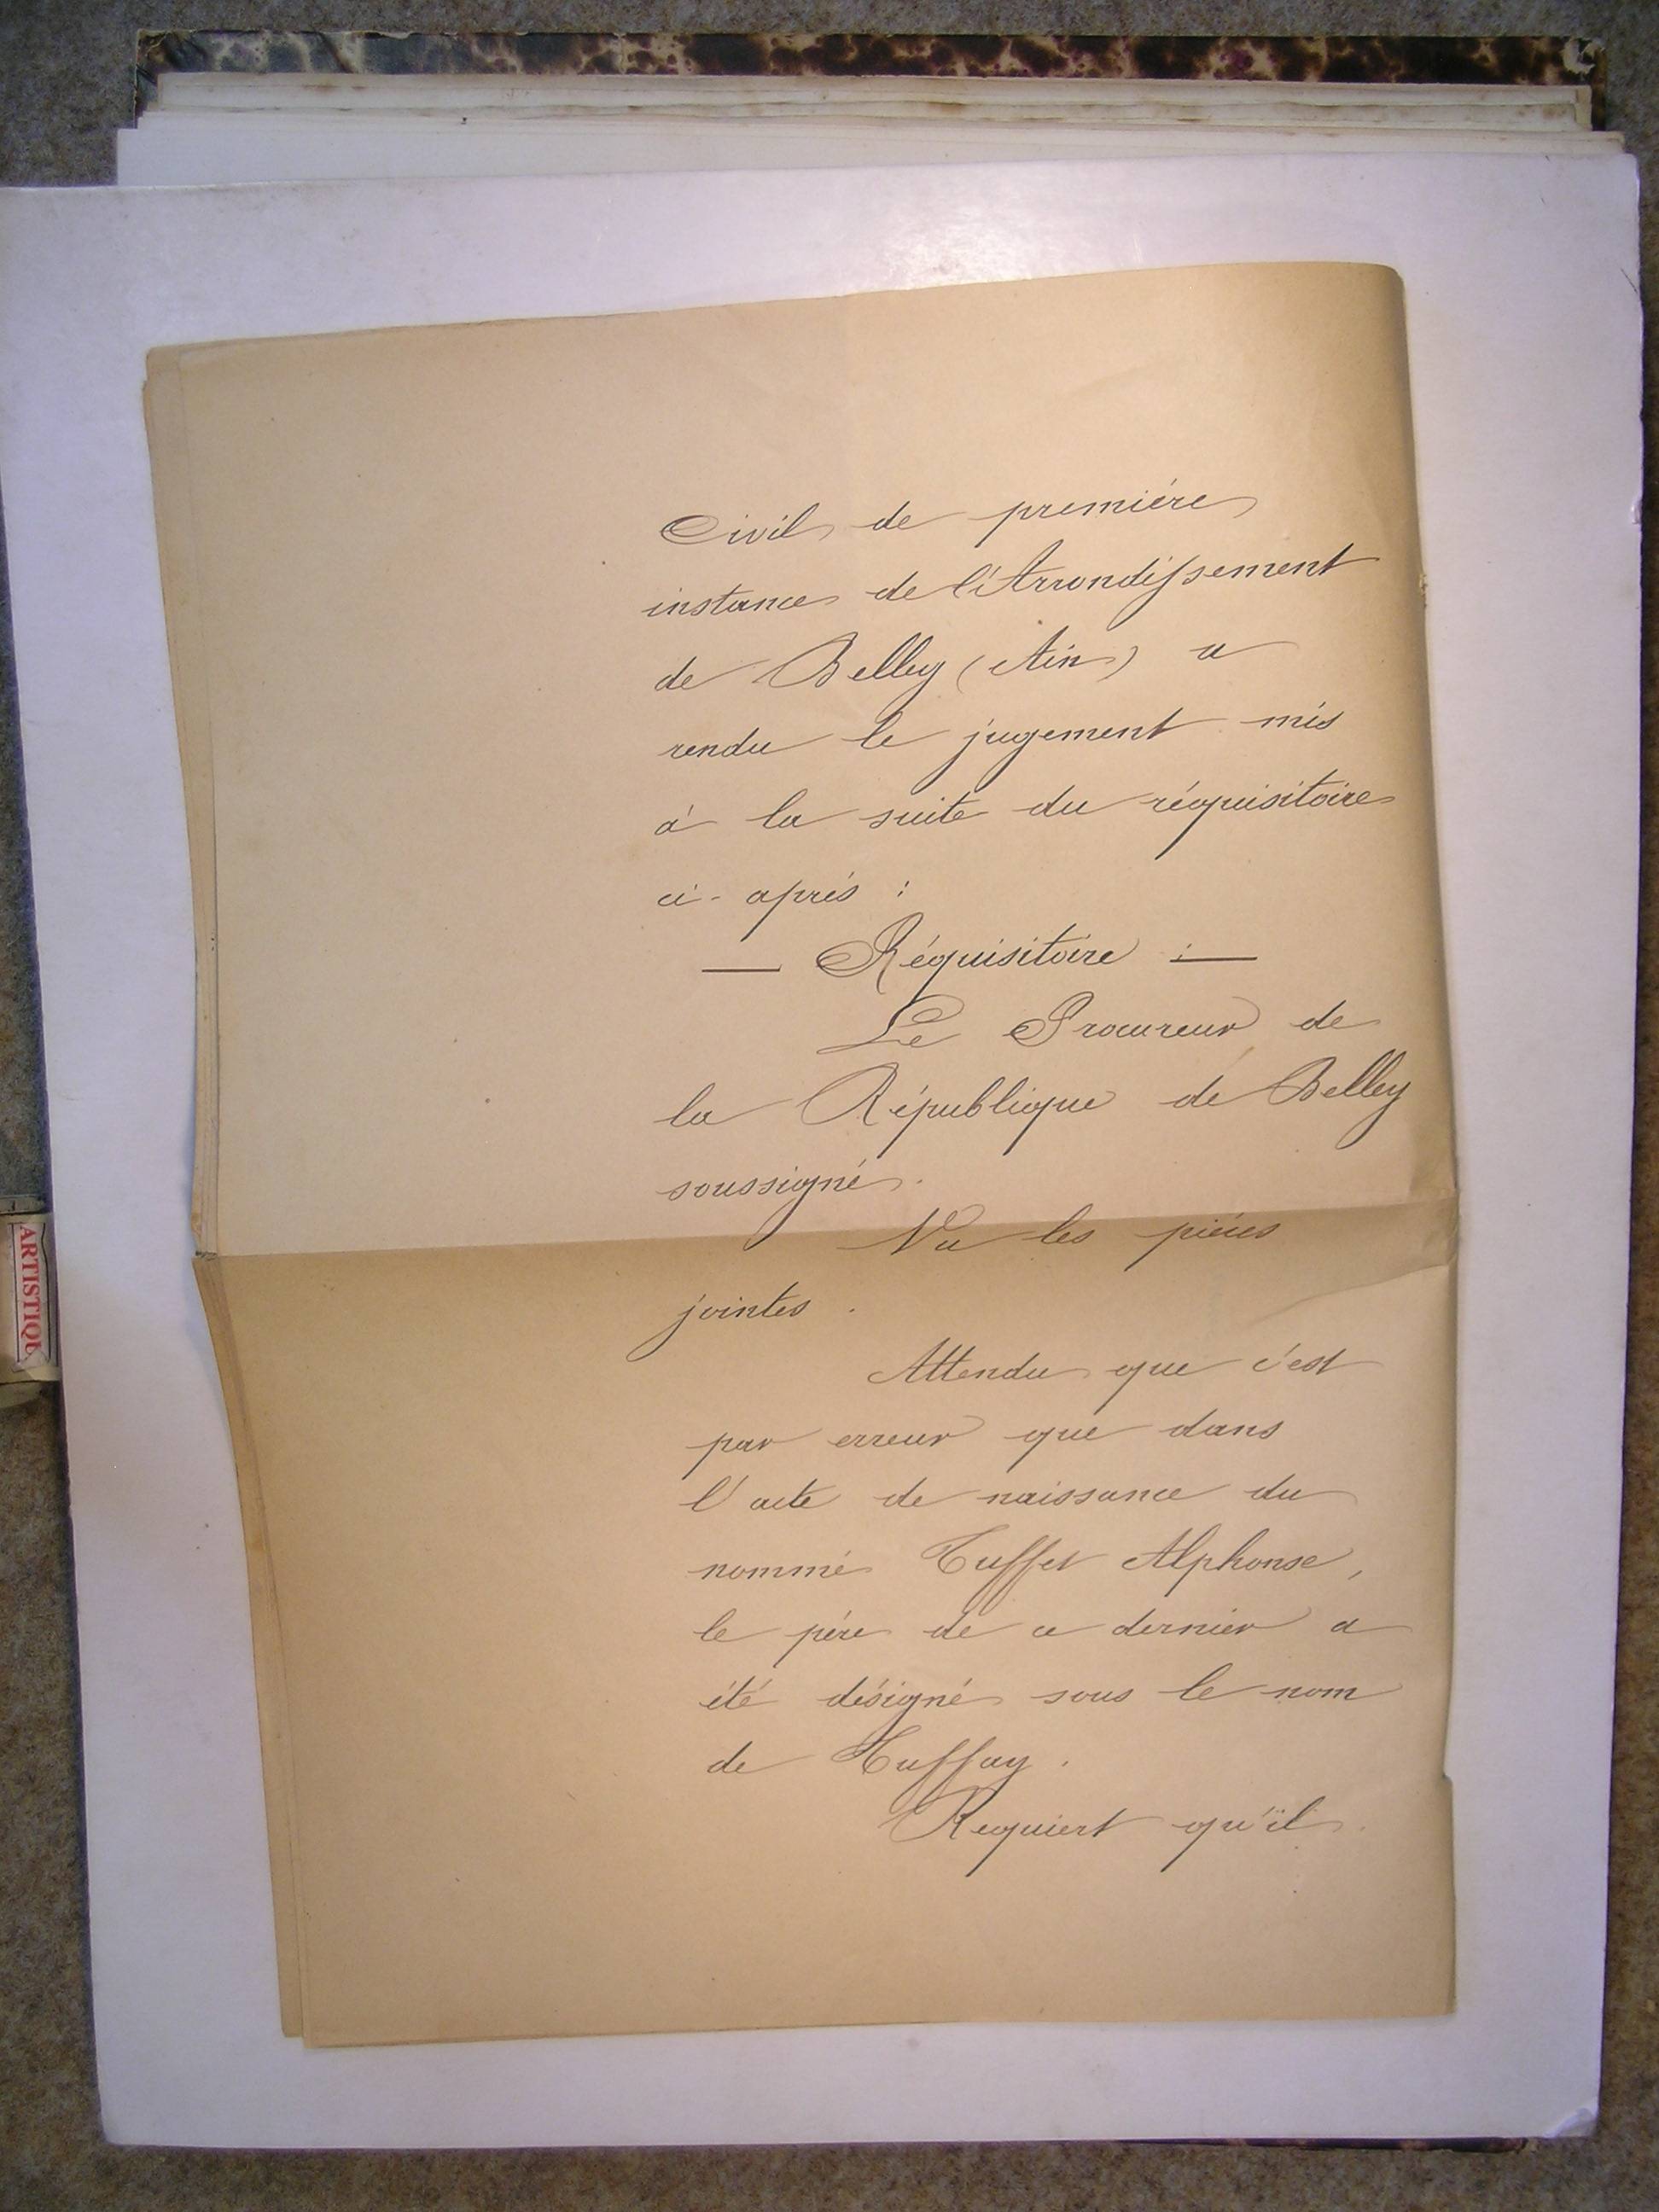 Civil de première
instance de l'Arrondissement
de Belley (Ain) a
rendu le jugement mis
à la suite du réquisitoire
ci-après :
— Réquisitoire : —
Le Procureur de
la République de Belley
soussigné.
Vu les pièces
jointes.
Attendu que c'est
par erreur que dans
l'acte de naissance du
nommé Tuffet Alphonse,
le père de ce dernier a
été désigné sous le nom
de Tuffay.
Requiert qu'il
ARTISTIQU